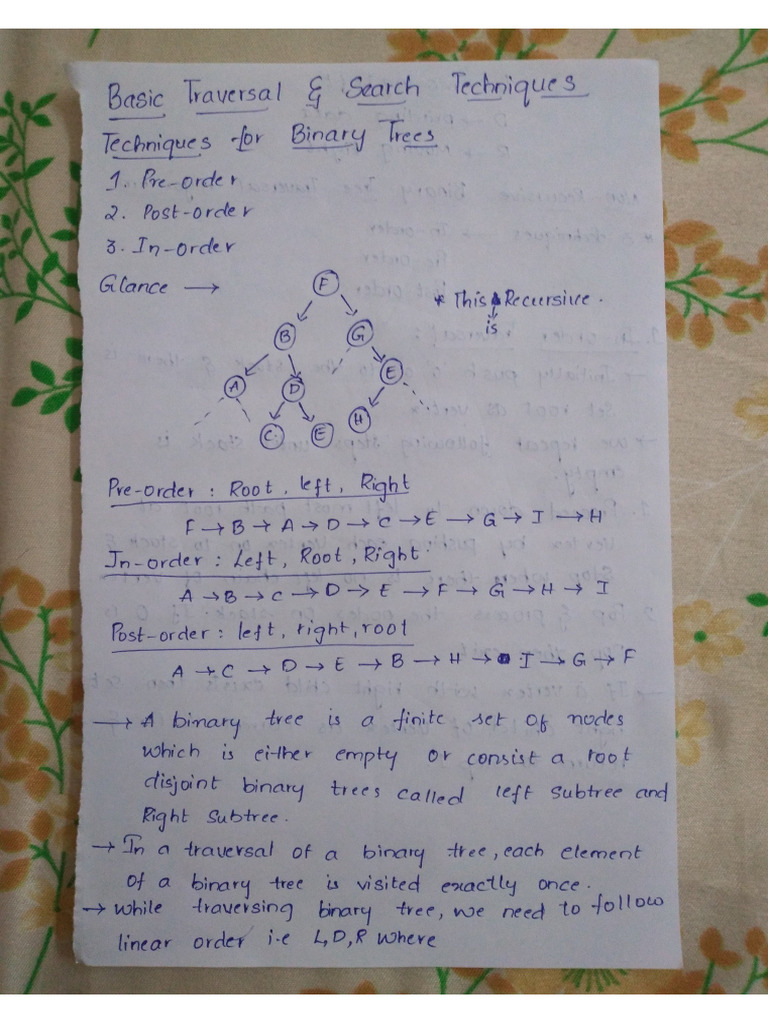 Basic Traversal & Search Techniques
Techniques for Binary Trees
1. Pre-order
2. Post-order
3. In-order
Glance →
F
* This Recursive.
is
B
G
A
D
E
C
E
H
Pre-order : Root, left, Right
F → B → A → D → C → E → G → I → H
In-order : Left, Root, Right
A → B → C → D → E → F → G → H → I
Post-order : left, right, root
A → C → D → E → B → H → I → G → F
→ A binary tree is a finite set of nodes
which is either empty or consist a root
disjoint binary trees called left subtree and
Right subtree.
→ In a traversal of a binary tree, each element
of a binary tree is visited exactly once.
→ While traversing binary tree, we need to follow
linear order i.e L, D, R where